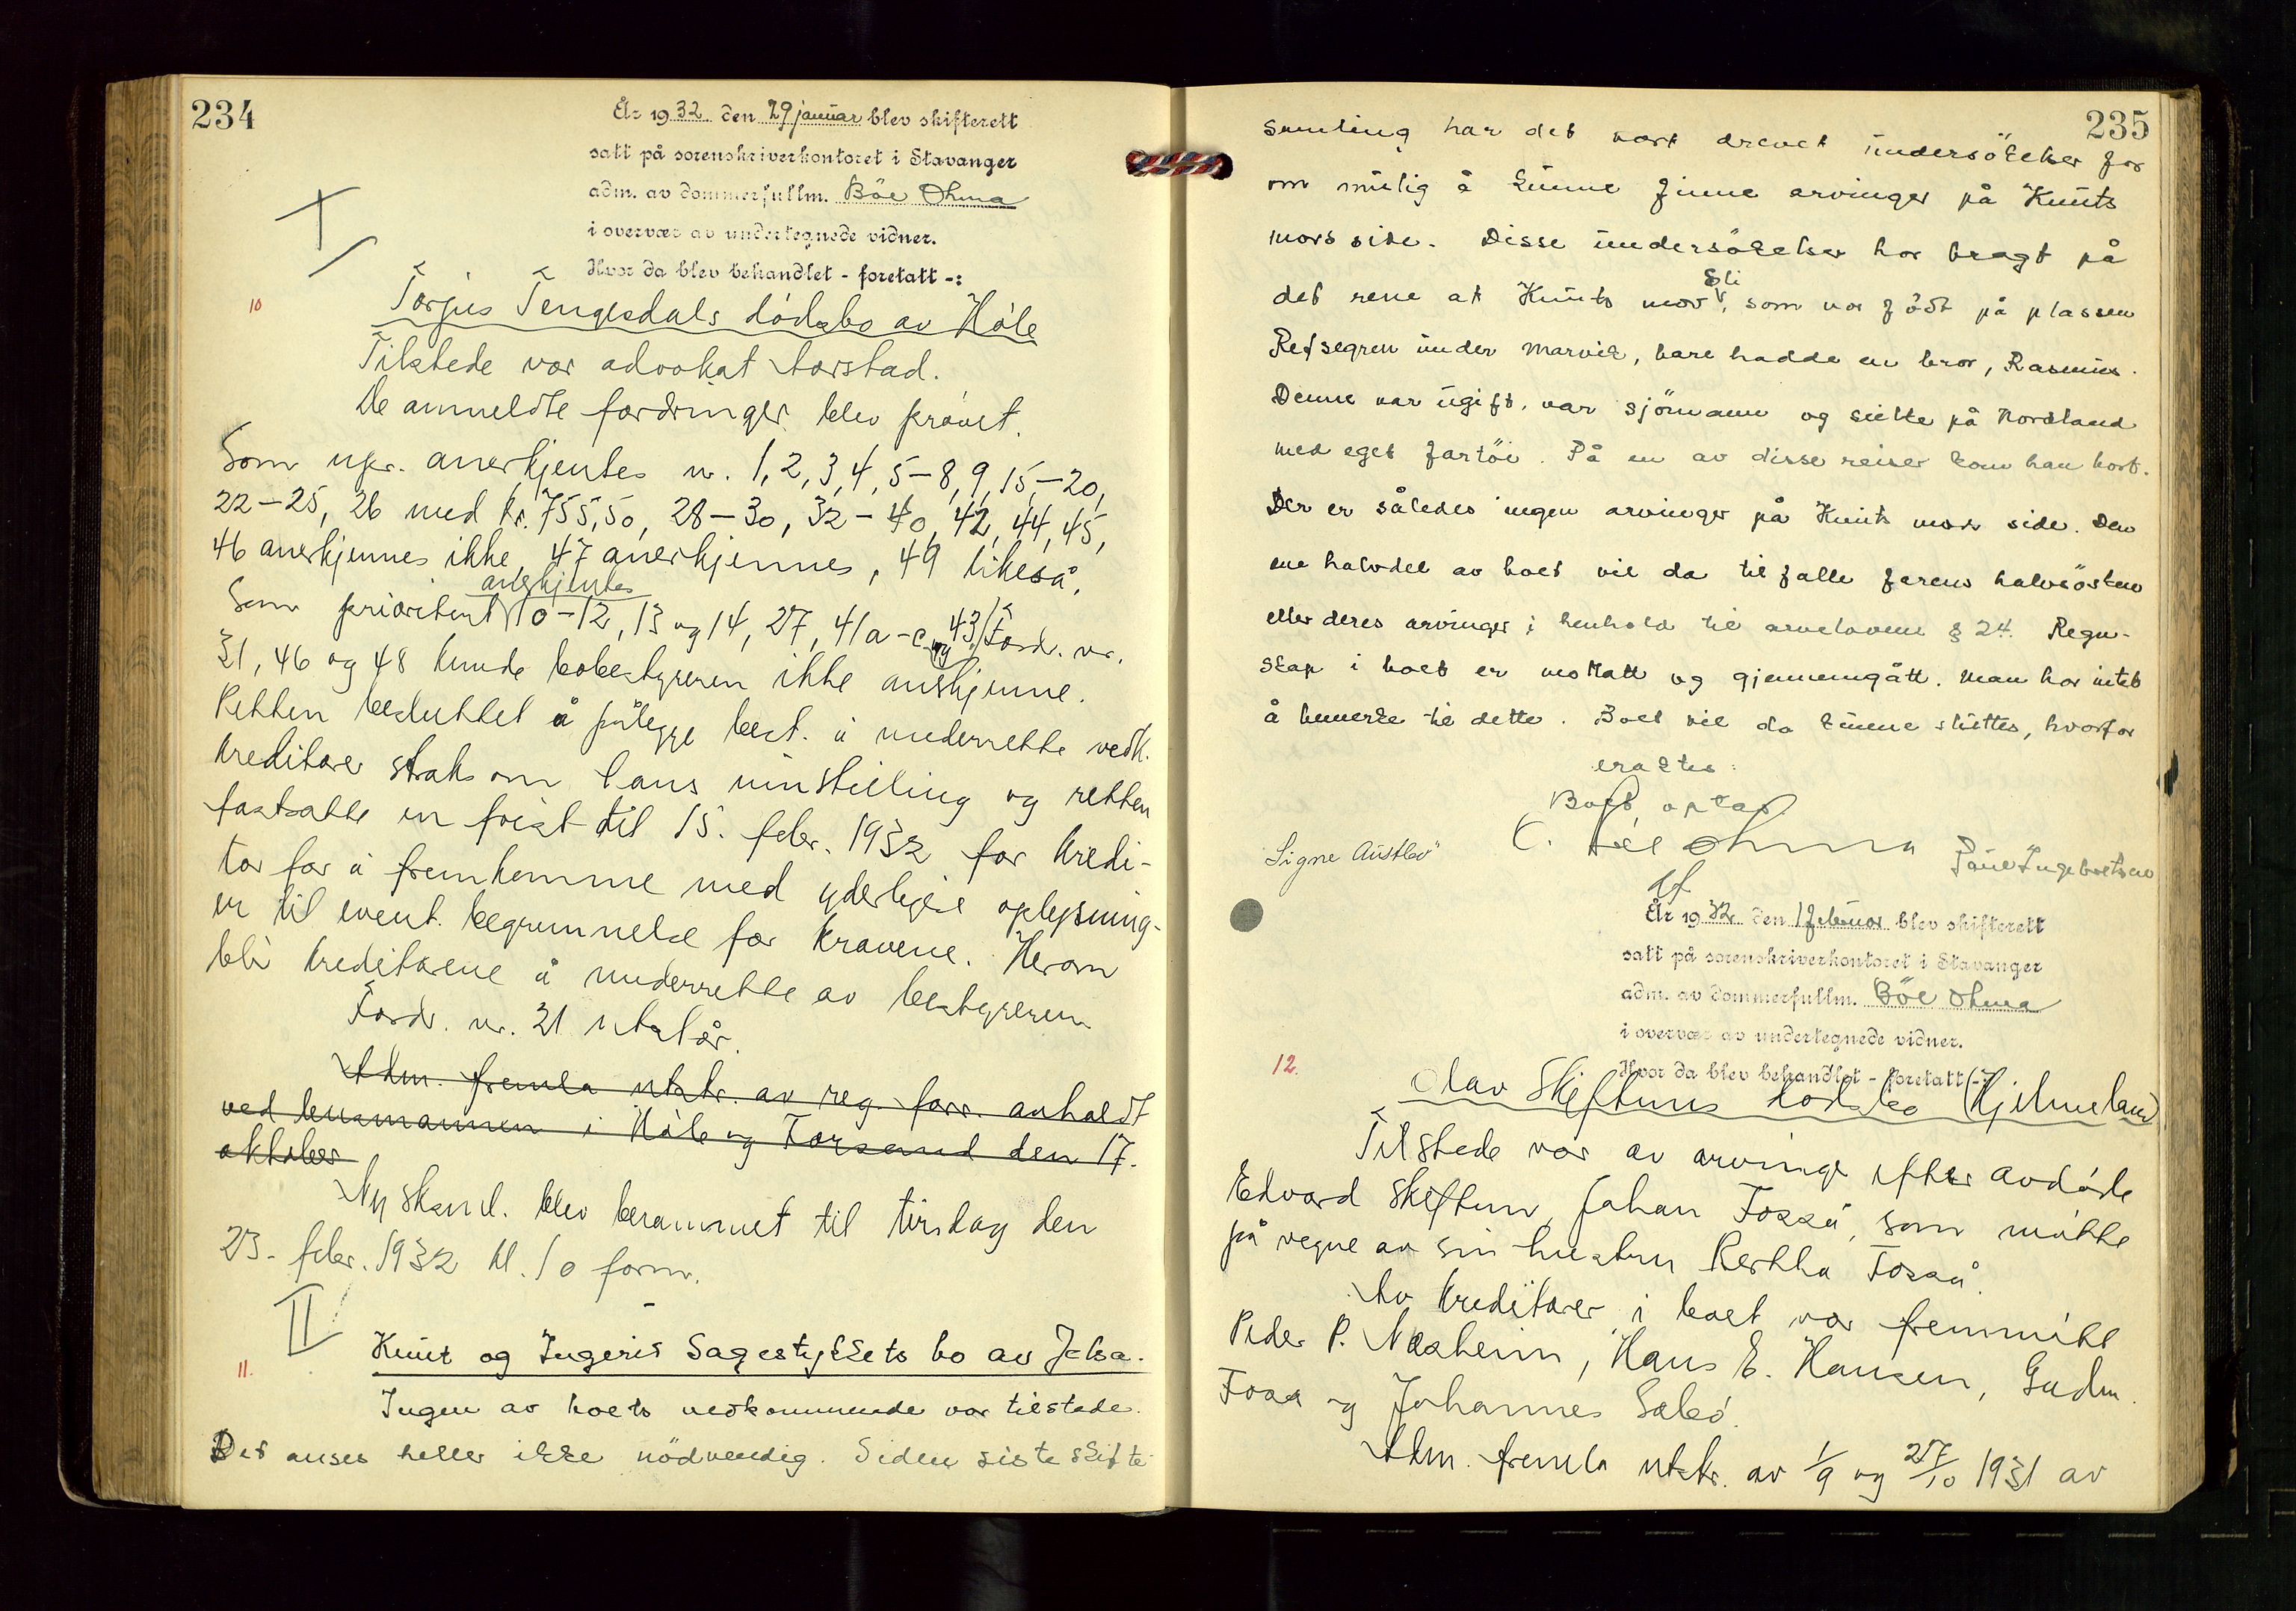 234
År 1932 den 29 januar blev skifterett
satt på sorenskriverkontoret i Stavanger
adm. av dommerfullm. Böe Ohma
i overvær av undertegnede vidner.
Hvor da blev behandlet - foretatt -:
I
10
Torjus Tengesdals dødsbo av Høle
Tilstede var advokat Aarstad.
De anmeldte fordringer blev prøvet.
Som upr. anerkjentes nr. 1, 2, 3, 4, 5-8, 9, 15-20,
22-25, 26 med kr. 755,50, 28-30, 32-40, 42, 44, 45,
46 anerkjennes ikke, 47 anerkjennes, 49 likeså.
anerkjentes
Som prioritert 10-12, 13 og 14, 27, 41a-c og 43. Ford. nr.
21, 46 og 48 kunde bobestyreren ikke anerkjenne.
Retten besluttet å pålegge best. å underrette vedk.
kreditorer straks om hans innstilling og retten
fastsatte en frist til 15. febr. 1932 for kredi-
tor for å fremkomme med yderligere oplysning-
er til event. begrunnelse for kravene. Herom
blir kreditorene å underrette av bestyreren
Ford. nr. 21 utstår.
Adm. fremla utskr. av reg. forr. avholdt
ved lensmannen i Høle og Forsand den 17.
oktober
Ny sksml. blev berammet til tirsdag den
23. febr. 1932 kl. 10 form.
II
11.
Knut og Ingerid Sagestykkets bo av Jelsa.
Ingen av boets vedkommende var tilstede.
Det anses heller ikke nödvendig. Siden siste skifte
235
samling har det vært drevet undersökelser for
om mulig å kunne finne arvinger på Knuts
mors side. Disse undersökelser har bragt på
Eli
det rene at Knuts mor, som var född på plassen
Refsegren under Marvik, bare hadde en bror, Rasmus.
Denne var ugift, var sjömann og seilte på Nordland
med eget fartöi. På en av disse reiser kom han bort.
Der er således ingen arvinger på Knuts mors side. Den
ene halvdel av boet vil da tilfalle farens halvsösken
eller deres arvinger i henhold til arvelovens § 24. Regn-
skap i boet er mottatt og gjennemgått. Man har intet
å bemerke til dette. Boet vil da kunne sluttes, hvorfor
eraktes:
Boet optas
C. Böe Ohma
Signe Austbø
Paul Ingebretsen
År 1932 den 1 februar blev skifterett
satt på sorenskriverkontoret i Stavanger
adm. av dommerfullm. Böe Ohma
i overvær av undertegnede vidner.
Hvor da blev behandlet - foretatt -:
12.
Olav Skiftuns dødsbo (Hjelmeland)
Tilstede var av arvinger efter avdøde
Edvard Skiftun, Johan Fosså, som møtte
på vegne av sin hustru Bertha Fosså.
Av kreditorer i boet var fremmøtt
Peder P. Næsheim, Hans E. Hansen, Gudm.
Foss og Johannes Sæbø.
Adm. fremla utskr. av 1/9 og 27/10 1931 av